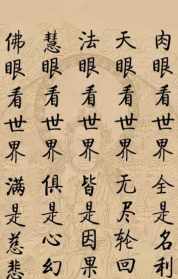 肉眼看世界全是名利
天眼看世界无尽轮回
法眼看世界皆是因果
慧眼看世界俱是心幻
佛眼看世界满是慈悲